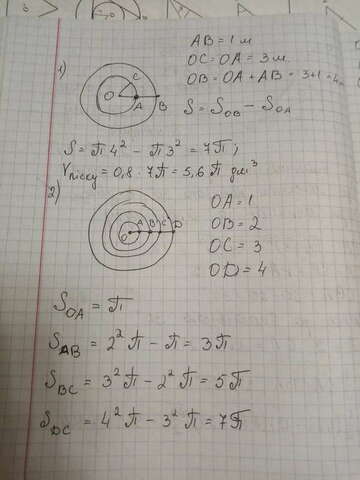 AB = 1 м
OC = OA = 3 м
OB = OA + AB = 3+1 = 4м
1)
C
O
A
B
S = S_OB − S_OA
S = π 4² − π 3² = 7π ;
V піску = 0,8 · 7π = 5,6 π дм³
2)
A B C D
O
OA = 1
OB = 2
OC = 3
OD = 4
S_OA = π
S_AB = 2²π − π = 3π
S_BC = 3²π − 2²π = 5π
S_DC = 4²π − 3²π = 7π